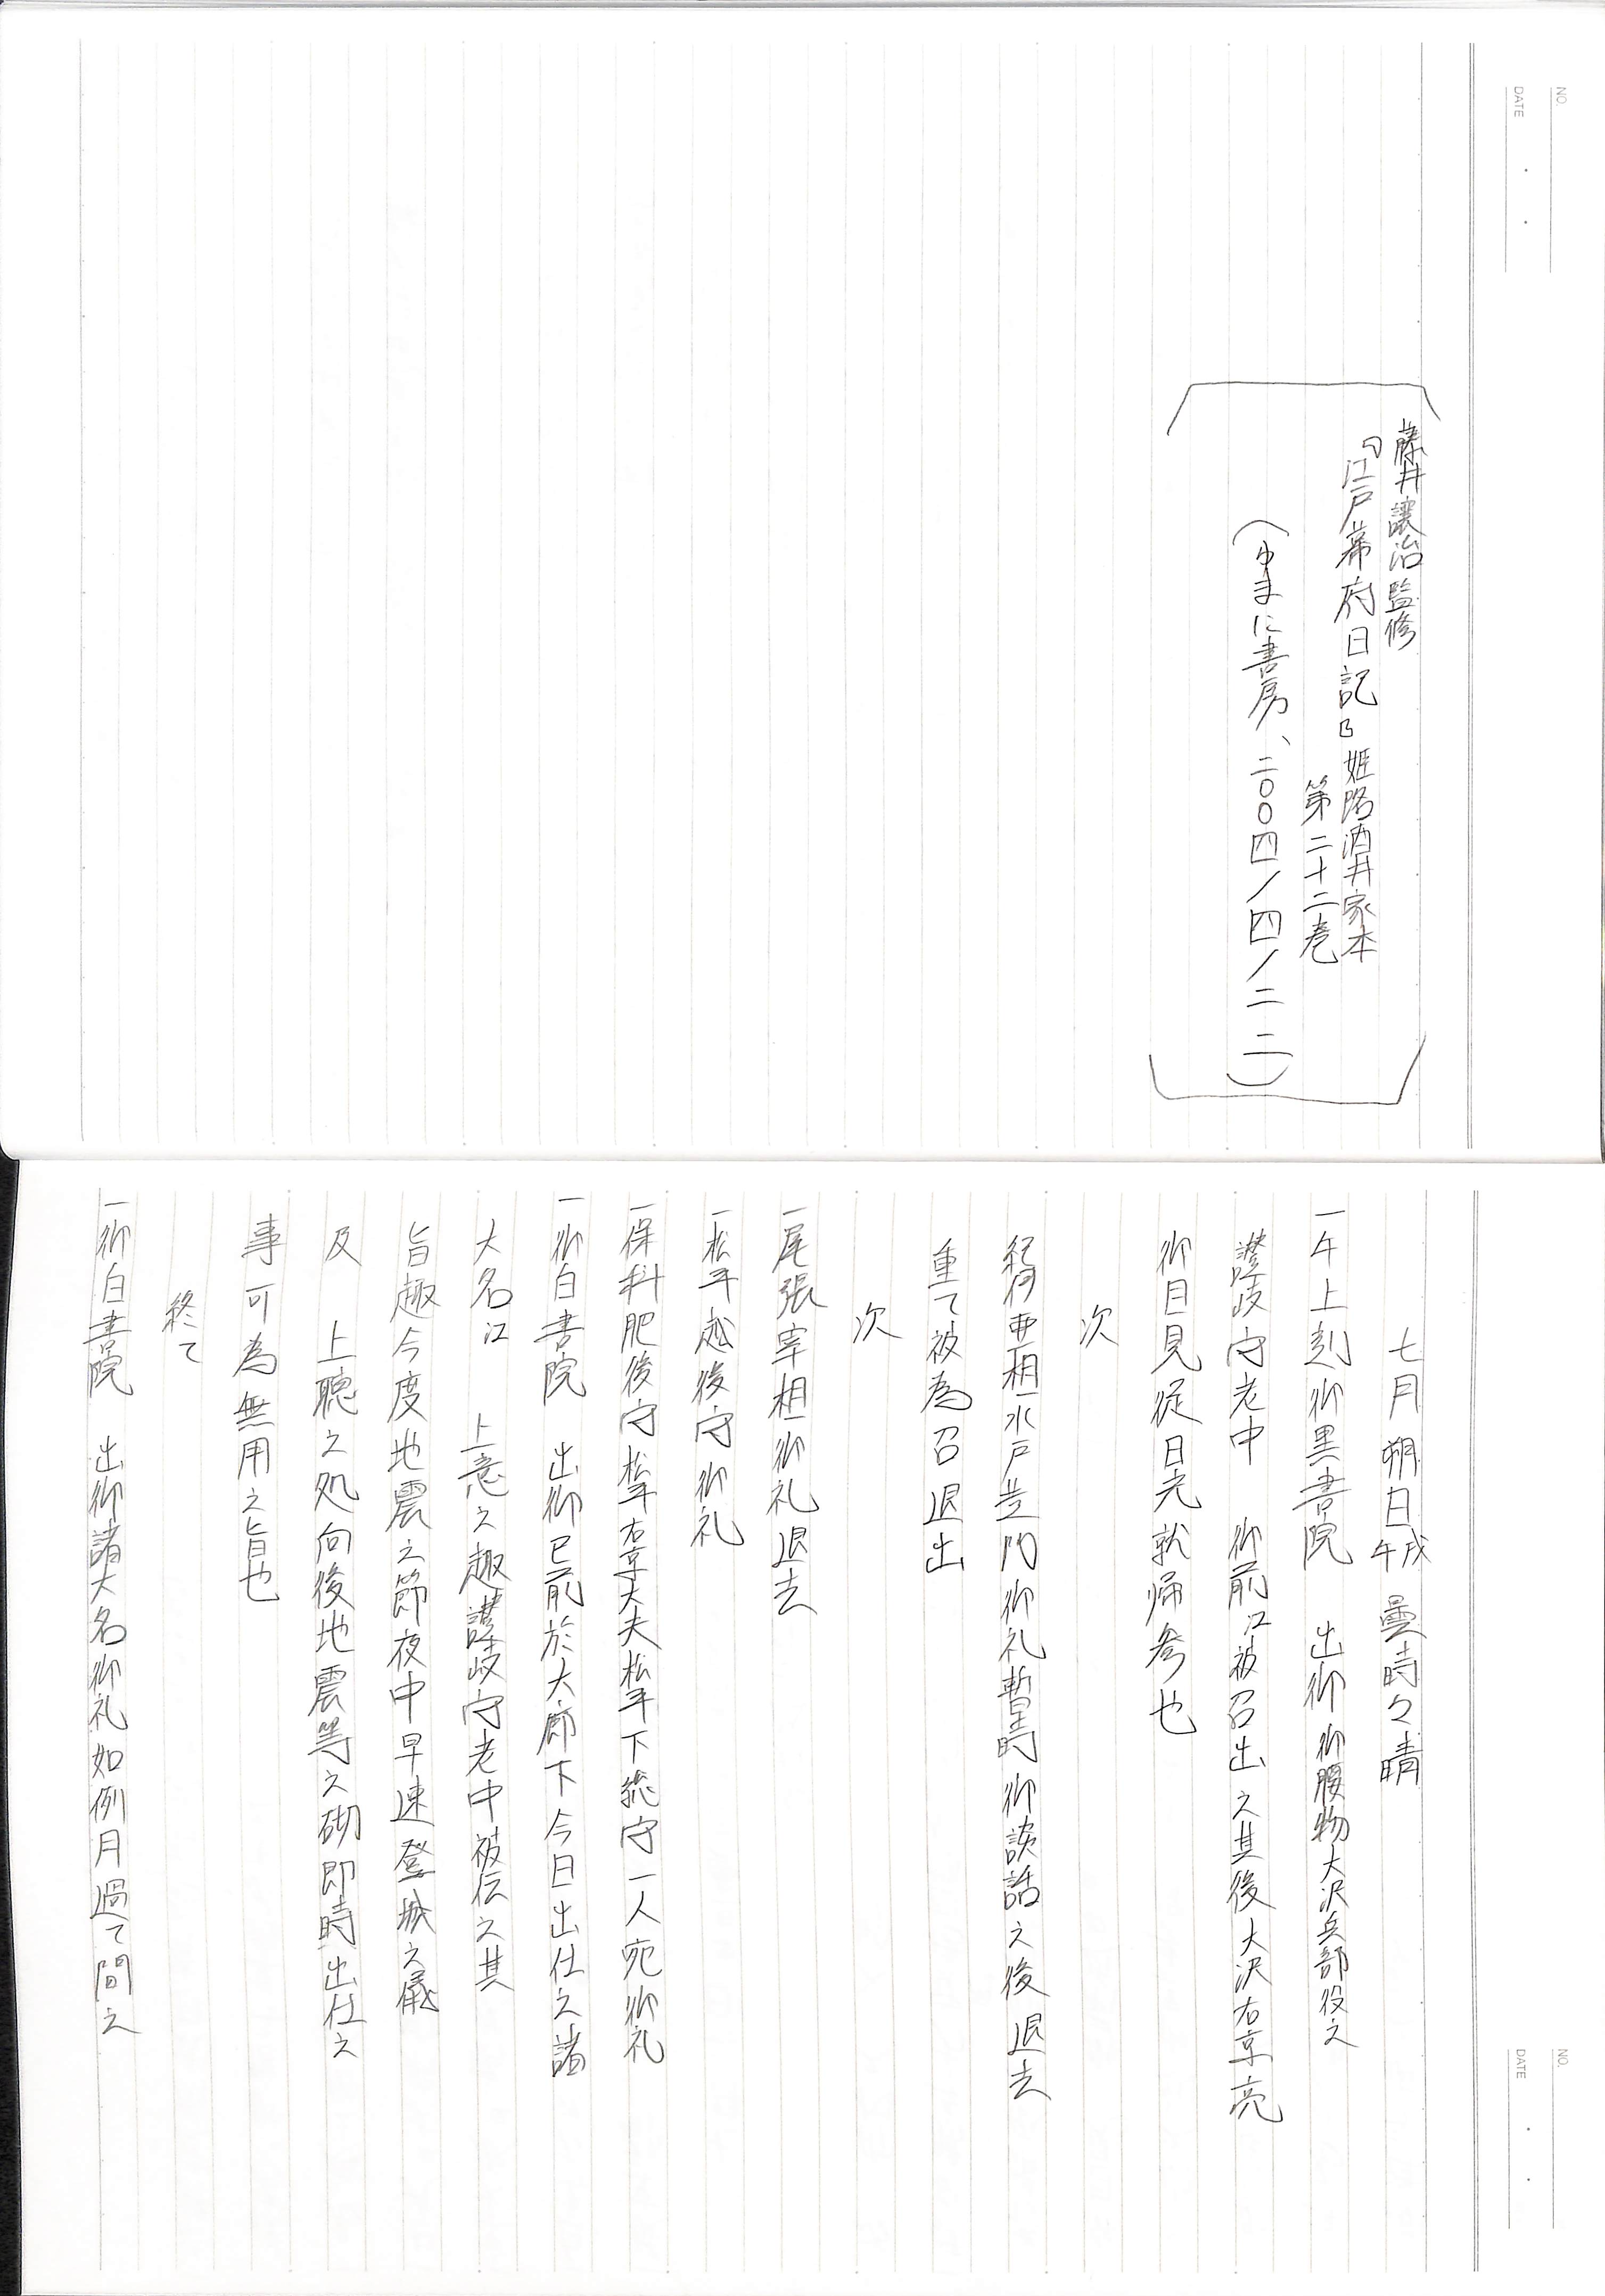 藤井讓治監修
『江戸幕府日記』姫路酒井家本
第二十二巻
（ゆまに書房、二〇〇四／四／二二）
NO.
DATE
七月朔日戊午曇時々晴
一午上尅御黒書院　出御御腰物大沢兵部役之
讃岐守老中　御前江被召出之其後大沢右京亮
御目見従日光就帰参也
次
紀伊亜相水戸黄門御礼暫時御談話之後退去
重て被為召退出
次
一尾張宰相御礼退去
一松平越後守御礼
一保科肥後守松平右京大夫松平下総守一人宛御礼
一御白書院　出御已前於大廊下今日出仕之諸
大名江　上意之趣讃岐守老中被伝之其
旨趣今度地震之節夜中早速登城之儀
及　上聴之処向後地震等之砌即時出仕之
事可為無用之旨也
終て
一御白書院　出御諸大名御礼如例月過て間之
NO.
DATE